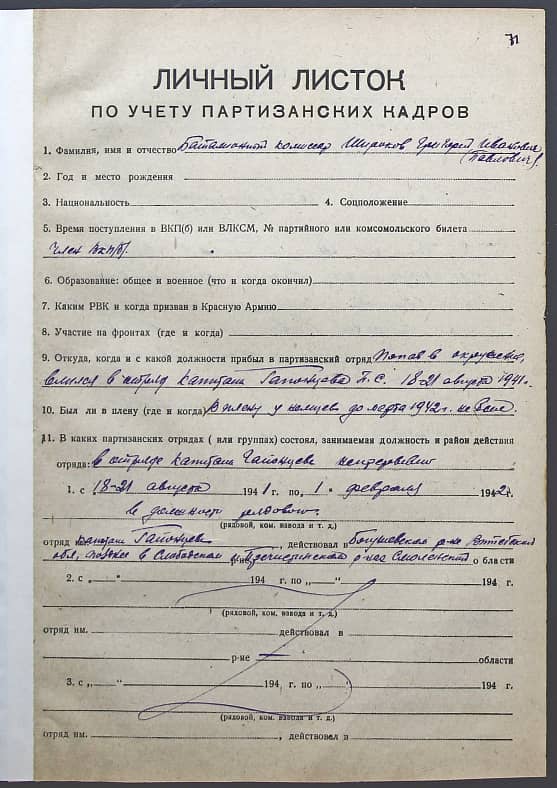 71
ЛИЧНЫЙ ЛИСТОК
ПО УЧЕТУ ПАРТИЗАНСКИХ КАДРОВ
1. Фамилия, имя и отчество Батальонный комиссар Широков Григорий Иванович
(Павлович).
2. Год и место рождения
3. Национальность 4. Соцположение
5. Время поступления в ВКП(б) или ВЛКСМ, № партийного или комсомольского билета
Член ВКП(б).
6. Образование: общее и военное (что и когда окончил)
7. Каким РВК и когда призван в Красную Армию
8. Участие на фронтах (где и когда)
9. Откуда, когда и с какой должности прибыл в партизанский отряд Попав в окружение,
влился в отряд капитана Гапонцева П.С. 18-21 августа 1941г.
10. Был ли в плену (где и когда) В плену у немцев до марта 1942г. не был.
11. В каких партизанских отрядах ( или группах) состоял, занимаемая должность и район действия
отряда: в отряде капитана Гапонцева
1. с 18-21 августа 1941 г. по „1 " февраля 1942 г.
в должности рядового.
(рядовой, ком. взвода и т. д.)
отряд им. капитана Гапонцева, действовал в Богушевском р-не Витебской
обл., позже в Слободском и Пречистинском р-нах Смоленской области
2. с „ — " 194 г. по „ — " 194 г.
(рядовой, ком. взвода и т. д.)
отряд им. действовал в
р-не — области
3. с „ — " 194 г. по „ — " 194 г.
(рядовой, ком. взвода и т. д.)
отряд им. , действовал в